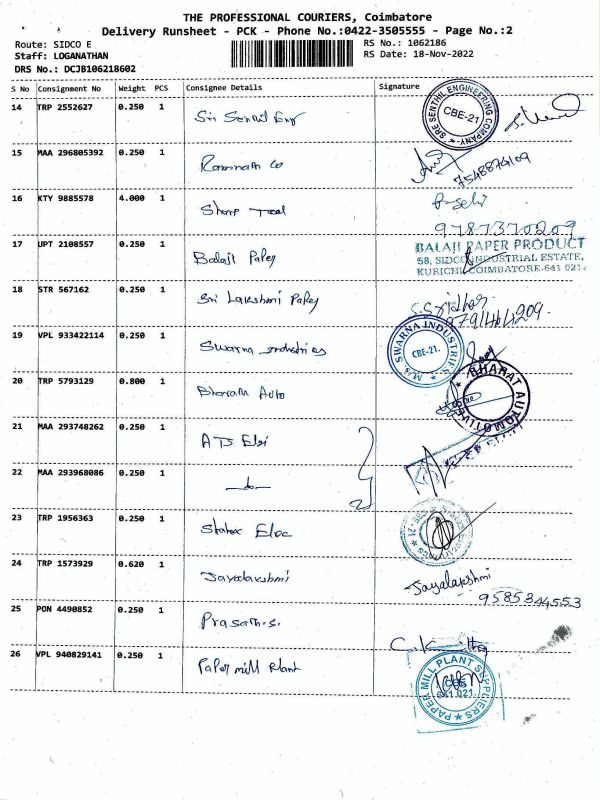 THE PROFESSIONAL COURIERS, Coimbatore
Delivery Runsheet - PCK - Phone No.:0422-3505555 - Page No.:2
Route: SIDCO E
RS No.: 1062186
Staff: LOGANATHAN
RS Date: 18-Nov-2022
DRS No.: DCJB106218602
S No Consignment No Weight PCS Consignee Details Signature
14 TRP 2552627 0.250 1 Sri Senthil Eng
SREE SENTHIL ENGINEERING COMPANY CBE-21
15 MAA 296805392 0.250 1
7548874109
16 KTY 9885578 4.000 1 Sharp Tool
9787370209
17 UPT 2108557 0.250 1 Balaji Paper
BALAJI PAPER PRODUCT
58, SIDCO INDUSTRIAL ESTATE,
KURICHI, COIMBATORE-641 021.
18 STR 567162 0.250 1 Sri Lakshmi Paper
S. Sridhar
9791464209.
19 VPL 933422114 0.250 1 Swarna Industries
M/s SWARNA INDUSTRIES CBE-21.
20 TRP 5793129 0.800 1 Bharath Auto
BHARAT AUTOMOTIVES
21 MAA 293748262 0.250 1
22 MAA 293968086 0.250 1
23 TRP 1956363 0.250 1
24 TRP 1573929 0.620 1 Jayalakshmi
Jayalakshmi
9585344553
25 PON 4490852 0.250 1
26 VPL 940829141 0.250 1 Paper mill Plant
PAPER MILL PLANT SUPPLIERS CBE 641 021.